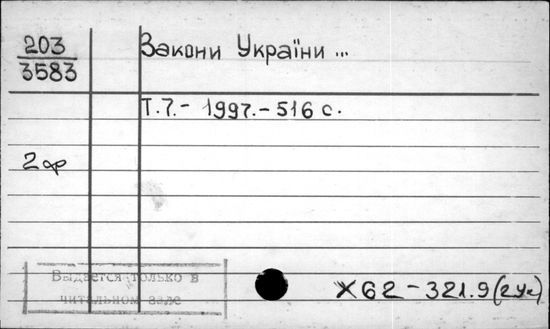 203
3583
Закони України ...
Т.7.- 1997.- 516 с.
2 ф
Выдается только в
читальном зале
Х62-321.9(2Ук)